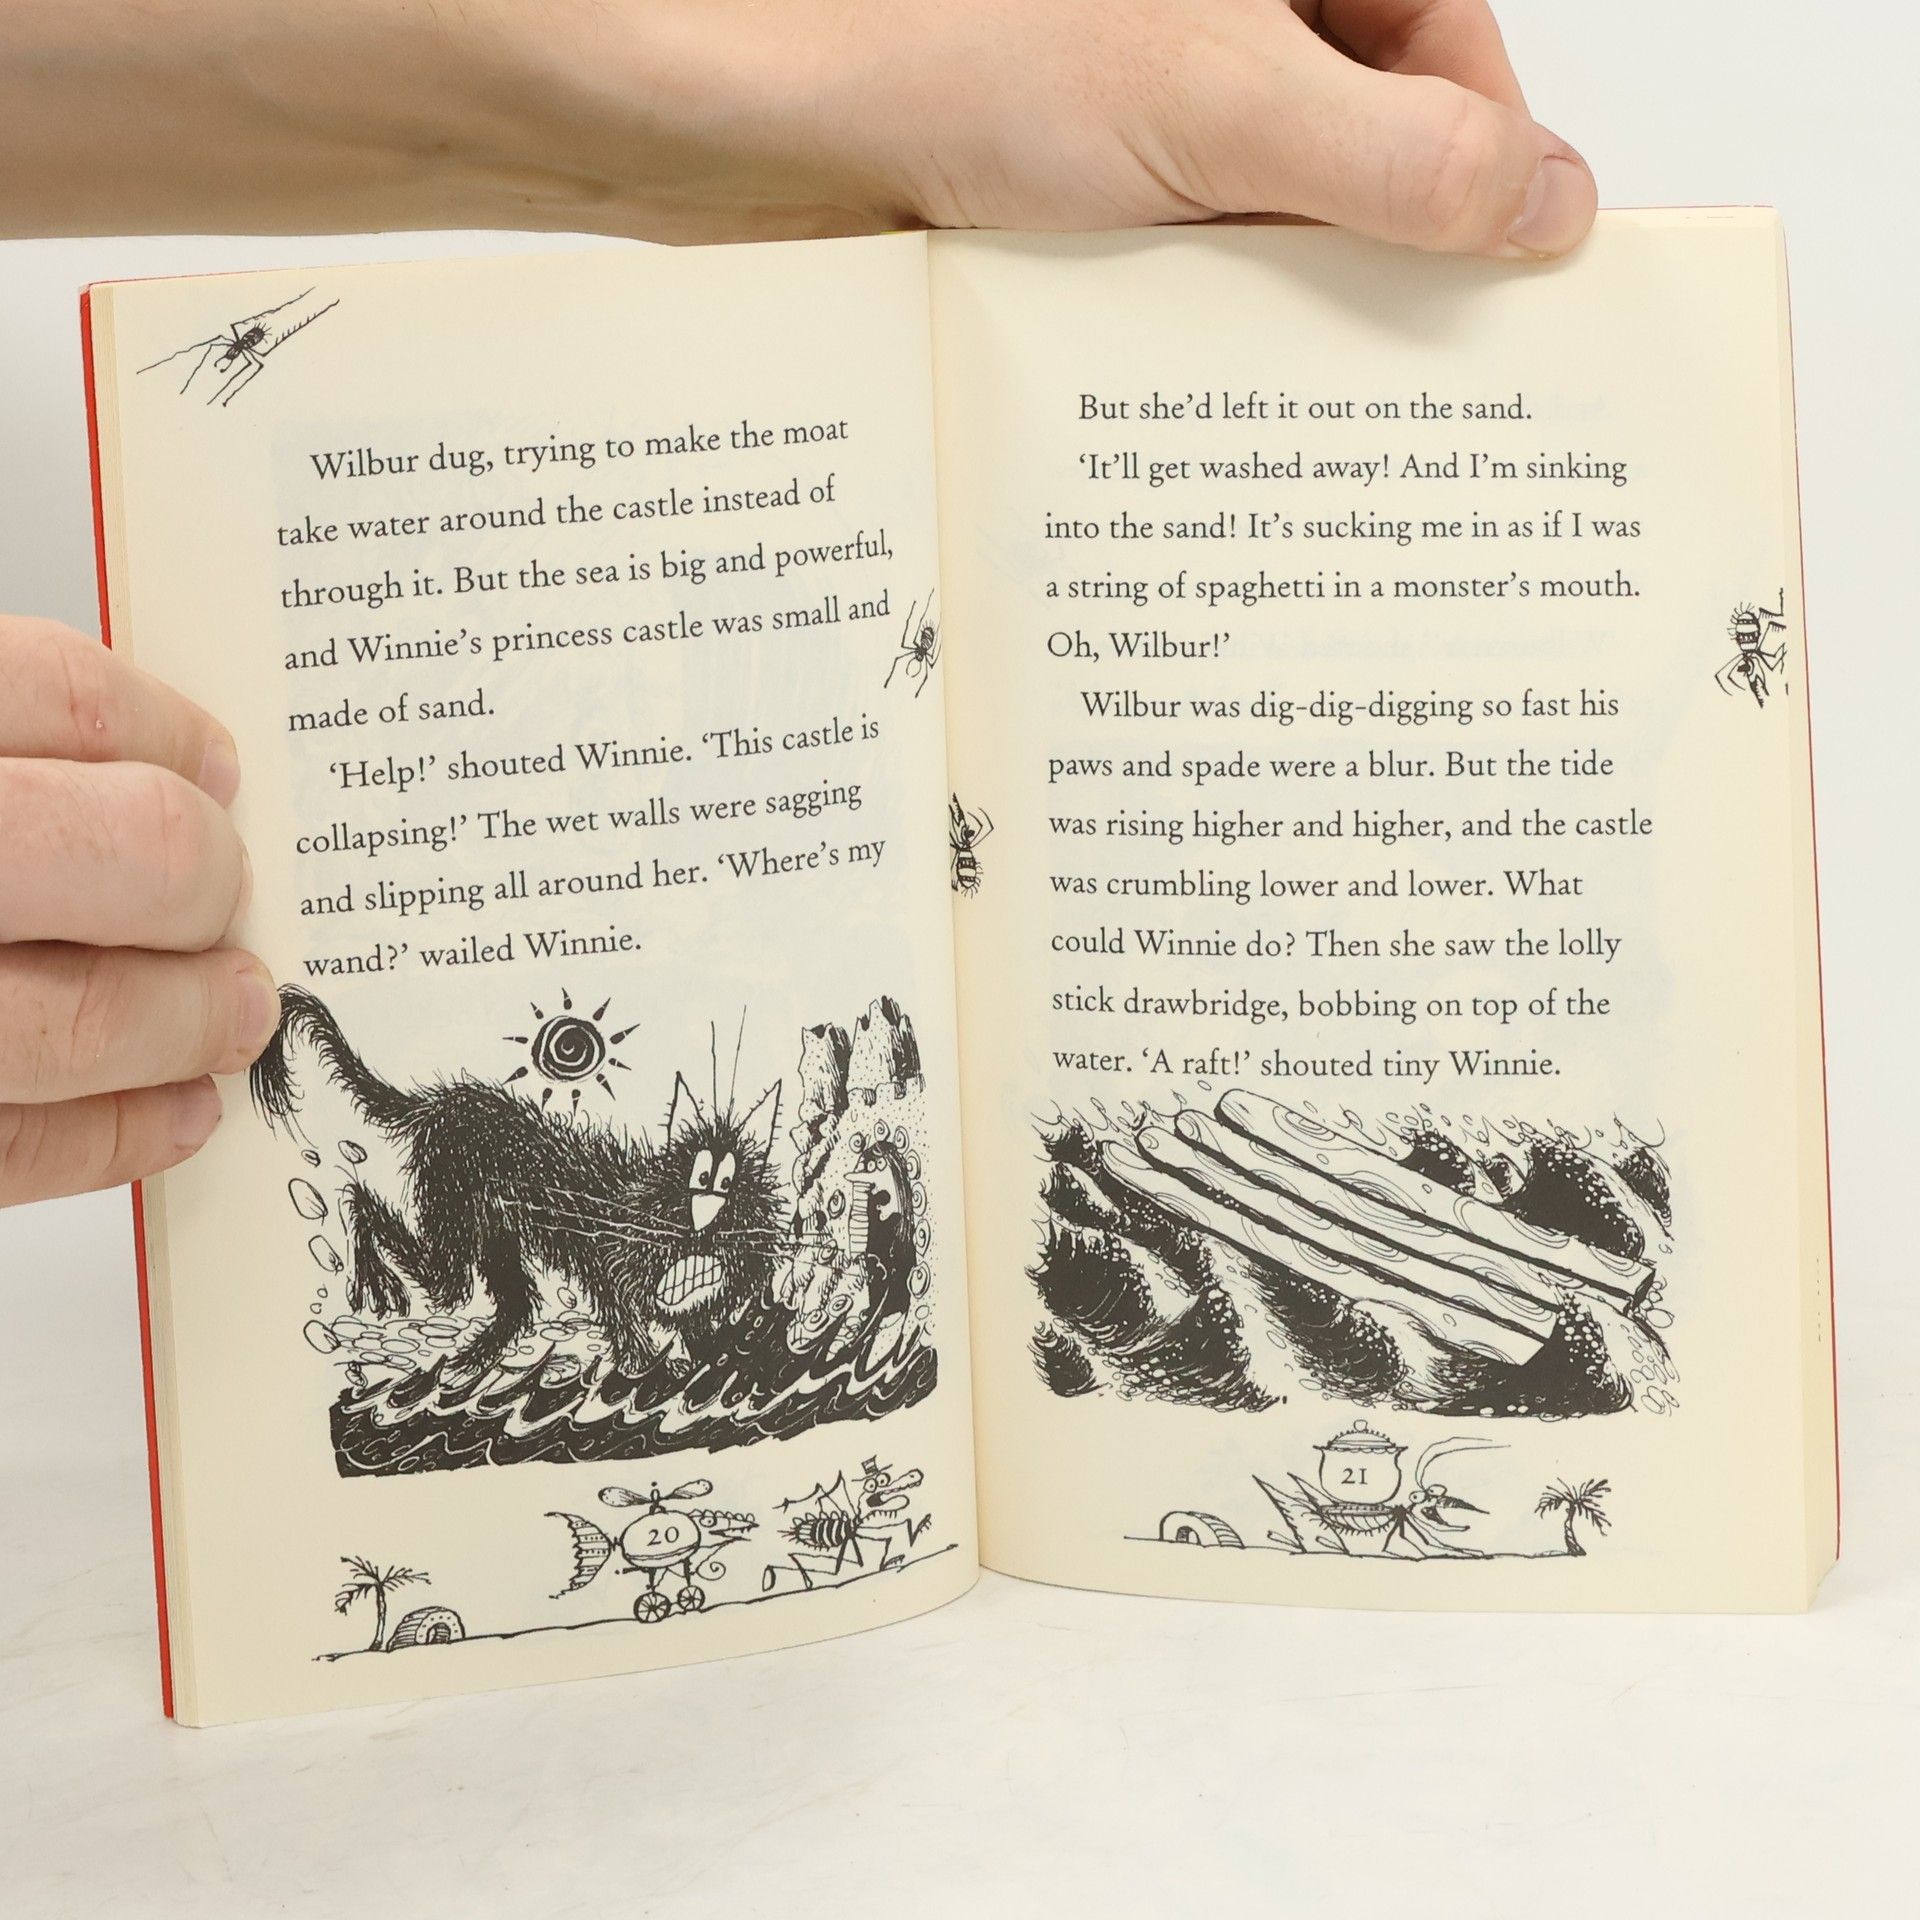 Wilbur dug, trying to make the moat
take water around the castle instead of
through it. But the sea is big and powerful,
and Winnie’s princess castle was small and
made of sand.
‘Help!’ shouted Winnie. ‘This castle is
collapsing!’ The wet walls were sagging
and slipping all around her. ‘Where’s my
wand?’ wailed Winnie.
20
But she’d left it out on the sand.
‘It’ll get washed away! And I’m sinking
into the sand! It’s sucking me in as if I was
a string of spaghetti in a monster’s mouth.
Oh, Wilbur!’
Wilbur was dig-dig-digging so fast his
paws and spade were a blur. But the tide
was rising higher and higher, and the castle
was crumbling lower and lower. What
could Winnie do? Then she saw the lolly
stick drawbridge, bobbing on top of the
water. ‘A raft!’ shouted tiny Winnie.
21